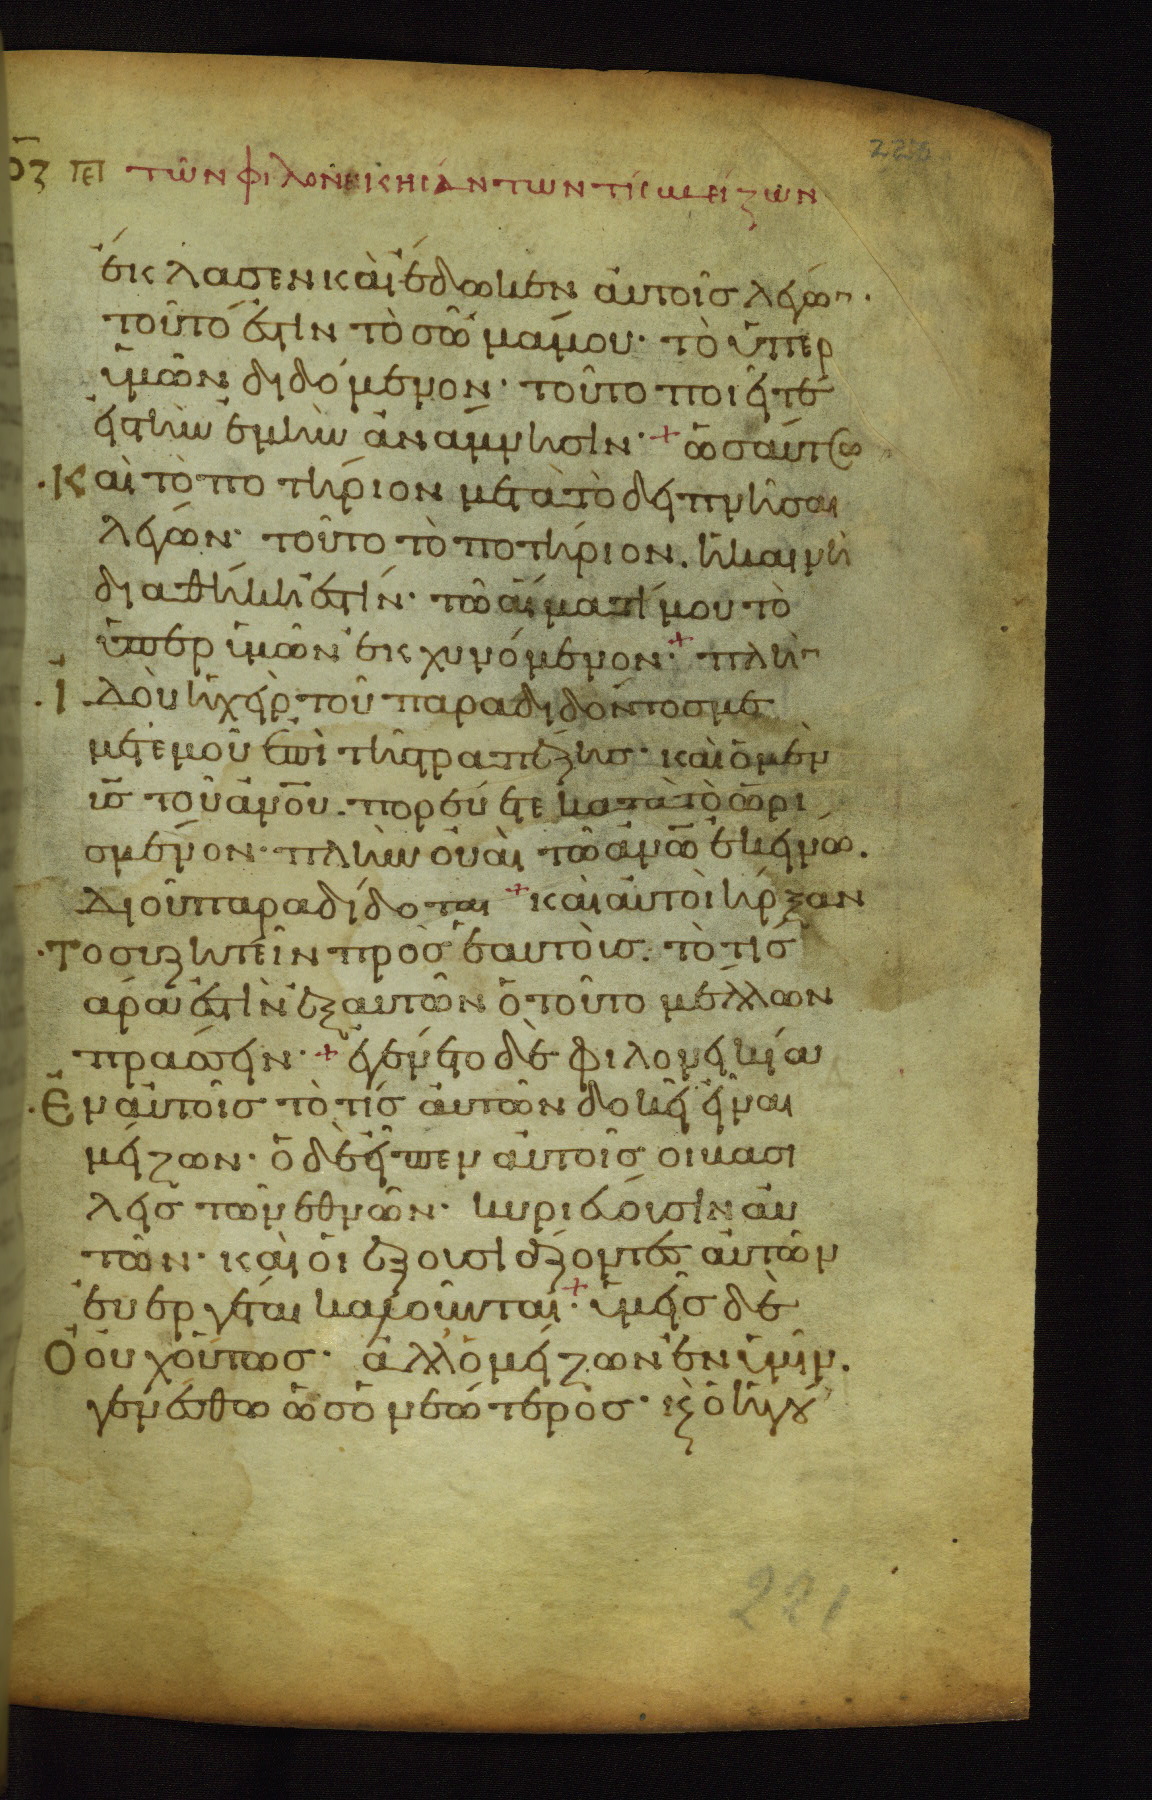 οζ πε τῶν φιλονεικησάντων τίς μείζων
228
ἔκλασεν καὶ ἔδωκεν αὐτοῖς λέγων·
τοῦτό ἐστιν τὸ σῶμά μου· τὸ ὑπερ
ὑμῶν διδόμενον· τοῦτο ποιεῖτε
εἰς τὴν ἐμὴν ἀνάμνησιν· + ὡσαύτως
·Καὶ τὸ ποτήριον μετὰ τὸ δειπνῆσαι
λέγων· τοῦτο τὸ ποτήριον. ἡ καινὴ
διαθήκη ἐστίν· τῶ αἵματί μου τὸ
ὑπερ ὑμῶν ἐκχυνόμενον· + πλὴν
·Ἰδοὺ ἡ χεὶρ τοῦ παραδιδόντος με
μετ ἐμοῦ ἐπὶ τῆς τραπέζης· καὶ ὁ μὲν
υς τοῦ ανου. πορεύεται κατὰ τὸ ὡρι
σμένον· πλὴν οὐαὶ τῶ ανω ἐκείνω.
δι οὗ παραδίδοται + καὶ αὐτοὶ ἤρξαν
·το συζητεῖν πρὸς ἑαυτοὺς. τὸ τίς
ἄρα ἐστὶν ἐξ αυτῶν ὁ τοῦτο μέλλων
πράσσειν· + ἐγένετο δὲ φιλονεικία
·Ἐν αὐτοῖς τὸ τίς αὐτῶν δοκεῖ εἶναι
μείζων· ὁ δὲ εἶπεν αὐτοῖς οι βασι
λεῖς τῶν εθνῶν· κυριεύουσιν αὐ
τῶν· καὶ οἱ ἐξουσιάζοντες αὐτῶν
ἐυεργέται καλοῦνται· + ὑμεῖς δὲ
Ὁ οὐχ οὕτως· ἀλλ ὁ μείζων ἐν ὑμῖν.
γενέσθω ὡς ὁ νεώτερος· κ ὁ ἡγού
221